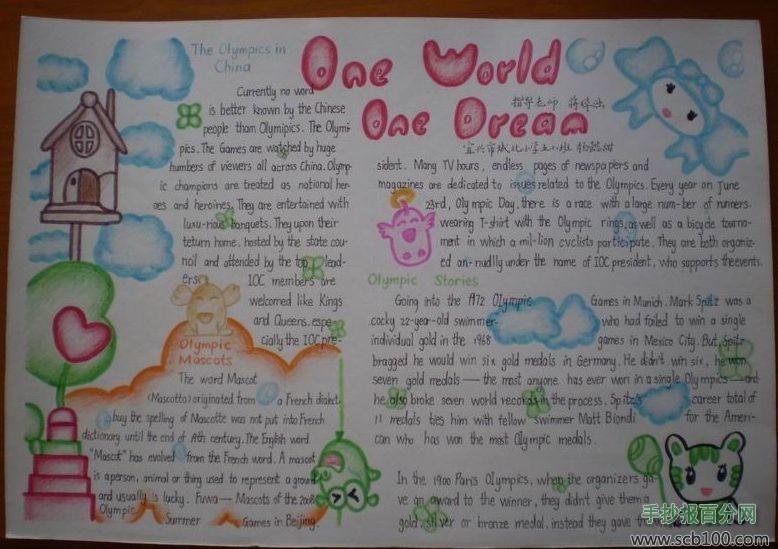 One World
One Dream
指导老师 蒋
宜兴市城北小学五小班 杨懿甜
The Olympics in
China
Currently no word
is better known by the Chinese
people than Olymipics. The Olymi-
pics. The Games are watched by huge
numbers of viewers all across China. Olymp-
ic champions are treated as national her-
oes and heroines. They are entertained with
luxu-rious banquets. They upon their
teturn home, hosted by the state cou-
ncil and attended by the top lead-
ers. IOC members are
welcomed like Kings
and Queens, espe-
cially the IOC pre-
sident. Many TV hours, endless pages of newspapers and
magazines are dedicated to issues related to the Olympics. Every year on June
23rd, Olympic Day, there is a race with a large num-ber of runners.
wearing T-shirt with the Olympic rings, as well as a bicycle tourna-
ment in which a mil-lion cvclists participate. They are both organiz-
ed an-nudlly under the name of IOC president, who supports the events.
Olympic
Mascots
The word Mascot
(Mascotto) originated from a French dialect.
buy the spelling of Mascotte was not put into French
dictionary until the end of 19th century. The English word
"Mascot" has evolved from the French word. A mascot
is a person, animal or thing used to represent a group
and usually is lucky. Fuwa—Mascots of the 2008
Olympic Summer Games in Beijing.
Olympic Stories
Going into the 1972 Olympic Games in Munich. Mark Spitz was a
cocky 22-year-old swimmer who had failed to win a single
individual gold in the 1968 games in Mexico City. But, Spitz
bragged he would win six gold medals in Germany. He didn't win six, he won
seven gold medals—the most anyone has ever won in a single Olympics—and
he also broke seven world records in the process. Spitz's career total of
11 medals ties him with fellow swimmer Matt Biondi for the Ameri-
can who has won the most Olympic medals.
In the 1900 Paris Olympics, when the organizers ga-
ve an award to the winner, they didn't give them a
gold, silver or bronze medal. instead they gave the
手抄报百分网
www.scb100.com